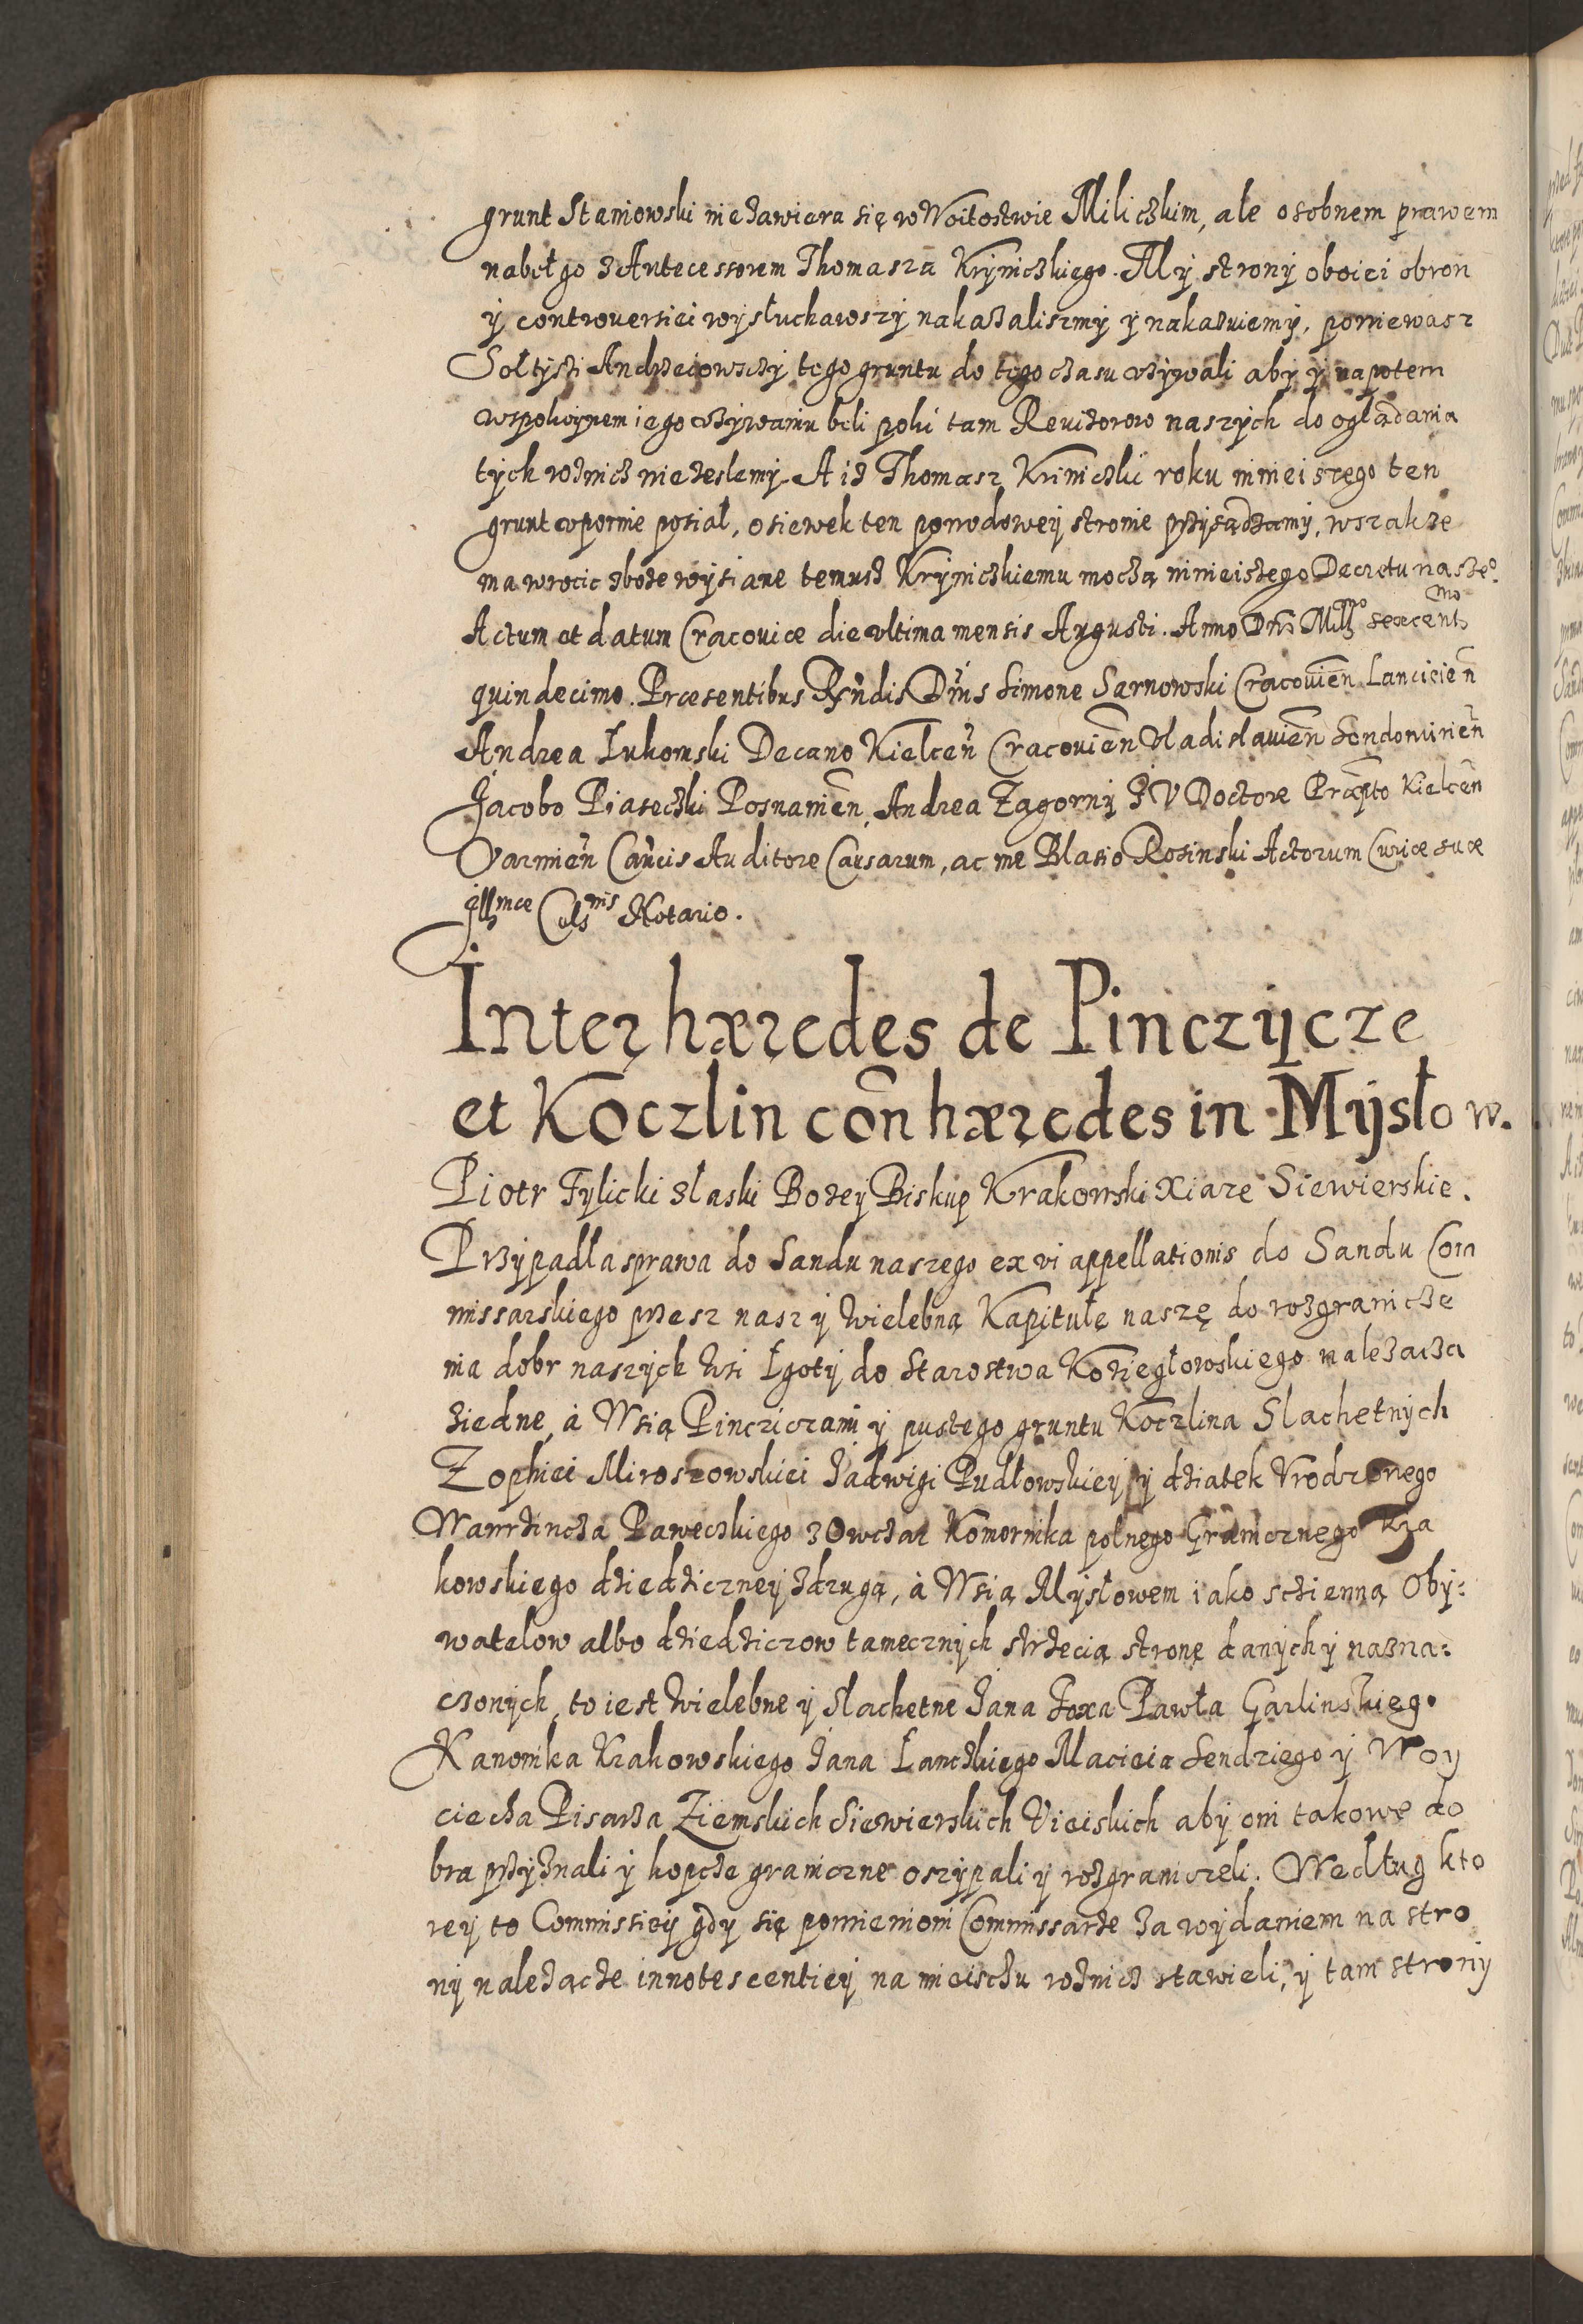 grunt Staniowski nie zawiera się w Woitostwie Miliczkim, ale osobnem prawem
nabeł go z Antecessorem Thomasza Kryniczkiego. My strony oboiei obron
y controuersiei wysłuchawszy nakazaliszmy y nakazuiemy, poniewasz
Sołtysi Andrzeiowsczy tego gruntu do tego czasu vżywali aby y napotem
w spokoynem iego vżywaniu beli poki tam Reuizorow naszych do oglądania
tych rożnicz nie zeslemy. A iż Thomasz Kriniczki roku ninieiszego ten
grunt vpornie posiał, osiewek ten powodowey stronie przysądzamy, wszakże
ma wrocic zboże wysiane temusz Kryniczkiemu moczą ninieiszego Decretu nasze⁰.
Actum et datum Cracouiæ die vltima mensis Augusti. Anno Dñi Mill̃mo sexcent̃mo
quindecimo. Præsentibus Rñdis Dñis Simone Sarnowski Cracouień Lancicień
Andrea Łukomski Decano Kielceń Cracouień Vladislauień Sendomirień
Jacobo Piaseczki Posnanień, Andrea Zagorny J V Doctore Præpto Kielceń
Varmień Cañcis Auditore Causarum, ac me Blasio Rosinski Actorum Curiæ suæ
Illmæ Celsnis Notario.
Inter hæredes de Pinczycze
et Koczlin coñ hæredes in Mysłow.
Piotr Tylicki z łaski Bożey Biskup Krakowski Xiaże Siewierskie.
Przypadła sprawa do Sandu naszego ex vi appellationis do Sandu Com
missarskiego przesz nasz y Wielebną Kapitułę naszę do rozgranicze
nia dobr naszych Wsi Lgoty do Starostwa Koziegłowskiego należacza
ziedne, à Wsią Pincziczami y pustego gruntu Koczlina Slachetnych
Zophiei Miroszowskiei Jadwigi Pudłowskiey y dziatek Vrodzonego
Wawrzincza Paweczkiego z Owczar Komornika polnego Granicznego Kra
kowskiego dziedziczney z drugą, à Wsią Mysłowem iako scienną Oby:
watelow albo dziedziczow tamecznych strzecią stronę danych y nazna:
czonych, to iest Wielebne y Slachetne Jana Foxa Pawła Garlinskiego
Kanonika Krakowskiego Jana Łanczkiego Macieia Sendziego y Woy
ciecha Pisarza Ziemskich Siewierskich Vieiskich aby oni takowe do
bra przyznali y kopcze graniczne oszypali y rozgraniczeli. Według kto
rey to Commissiey gdy się pomienioni Commissarze za wydaniem na stro
ny należącze innotescentiey na mieisczu rożnicz stawieli, y tam strony